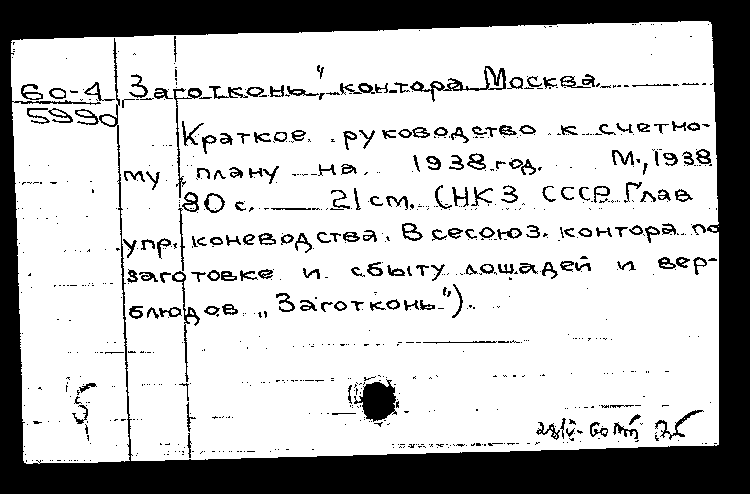 60-4 „Заготконь", контора. Москва.
5990
Краткое руководство к счетно-
му плану на 1938 год. М., 1938
80 с. 21 cm. (НКЗ СССР Глав
упр. коневодства. Всесоюз. контора по
заготовке и сбыту лошадей и вер-
блюдов „Заготконь").